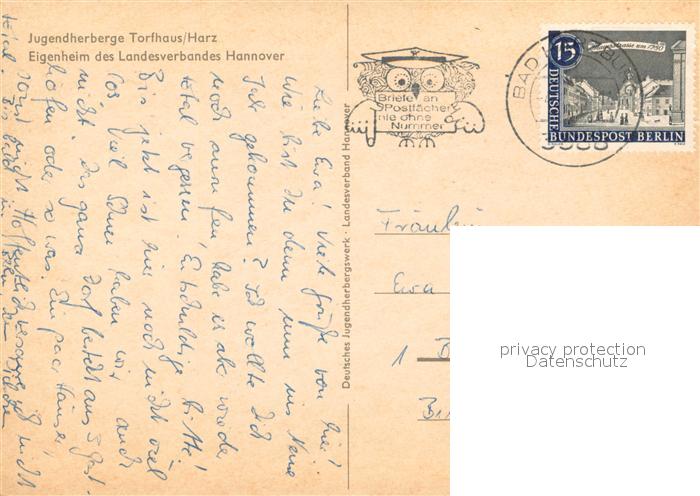 Jugendherberge Torfhaus/Harz
Eigenheim des Landesverbandes Hannover
Liebe Ewa! Viele Grüße von hier!
Wie bist Du denn nun ins Neue
Jahr gekommen? Ich wollte Dich
noch anrufen, habe es aber wieder
total vergessen. Entschuldige bitte!
Bis jetzt ist hier noch nicht viel
los. Viel Schnee haben wir auch
nicht. Das ganze Dorf besteht aus 3 Gast-
höfen oder so was. Ein paar Häuser,
sonst nichts. Hoffentlich
Deutsches Jugendherbergswerk - Landesverband Hannover
Briefe an
Postfächer
nie ohne
Nummer
BAD
15
1780
DEUTSCHE
BUNDESPOST BERLIN
Fräulein
Ewa
1 B
privacy protection
Datenschutz